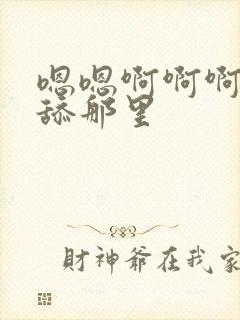 嗯嗯啊啊啊
舔那里
財神爺在我家